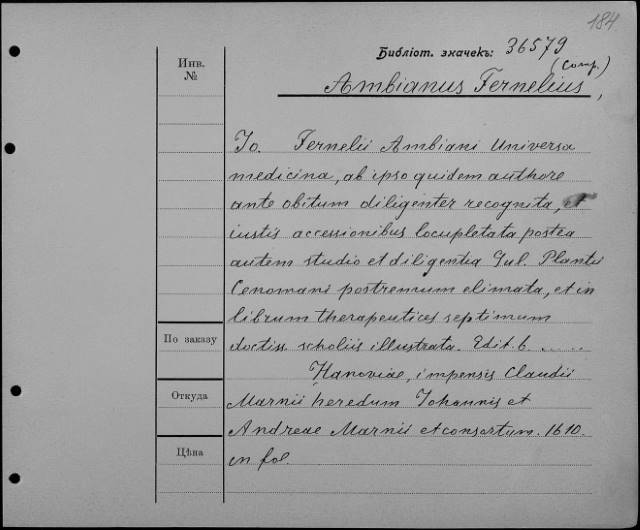 184
Библіот. значекъ: 36579
(Comp.)
Инв.
№
Ambianus Fernelius,
Io. Fernelii Ambiani Universa
medicina, ab ipso quidem authore
ante obitum diligenter recognita, et
iustis accessionibus locupletata postea
autem studio et diligentia Gul. Plantii
Cenomani postremum elimata, et in
librum therapeutices septimum
По заказу
doctiss. scholiis illustrata. Edit. 6. ......
Hanoviae, impensis Claudii
Откуда
Marnii heredum Iohannis et
Andreae Marnii et consortum. 1610.
Цѣна
in fol.